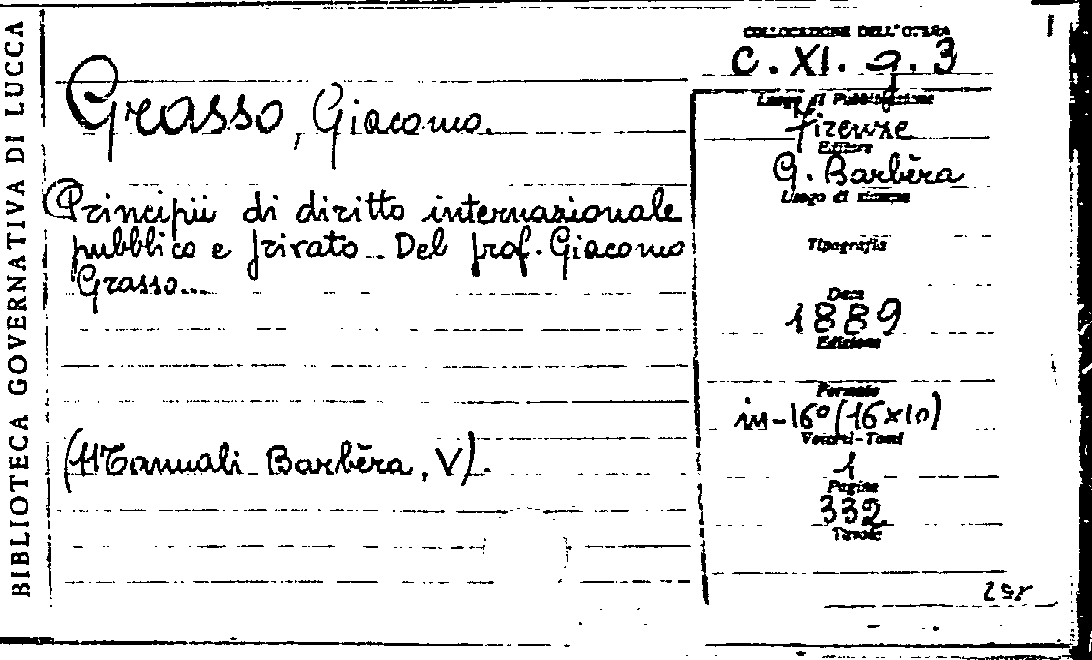 BIBLIOTECA GOVERNATIVA DI LUCCA
Grasso, Giacomo.
Principii di diritto internazionale
pubblico e privato. Del prof. Giacomo
Grasso...
(Manuali Barbèra, V).
COLLOCAZIONE DELL'OPERA
C. XI. g. 3
Luogo di Pubblicazione
Firenze
Editore
G. Barbèra
Luogo di stampa
Tipografia
Data
1889
Edizione
Formato
in-16° (16×10)
Volumi-Tomi
1
Pagine
332
Tavole